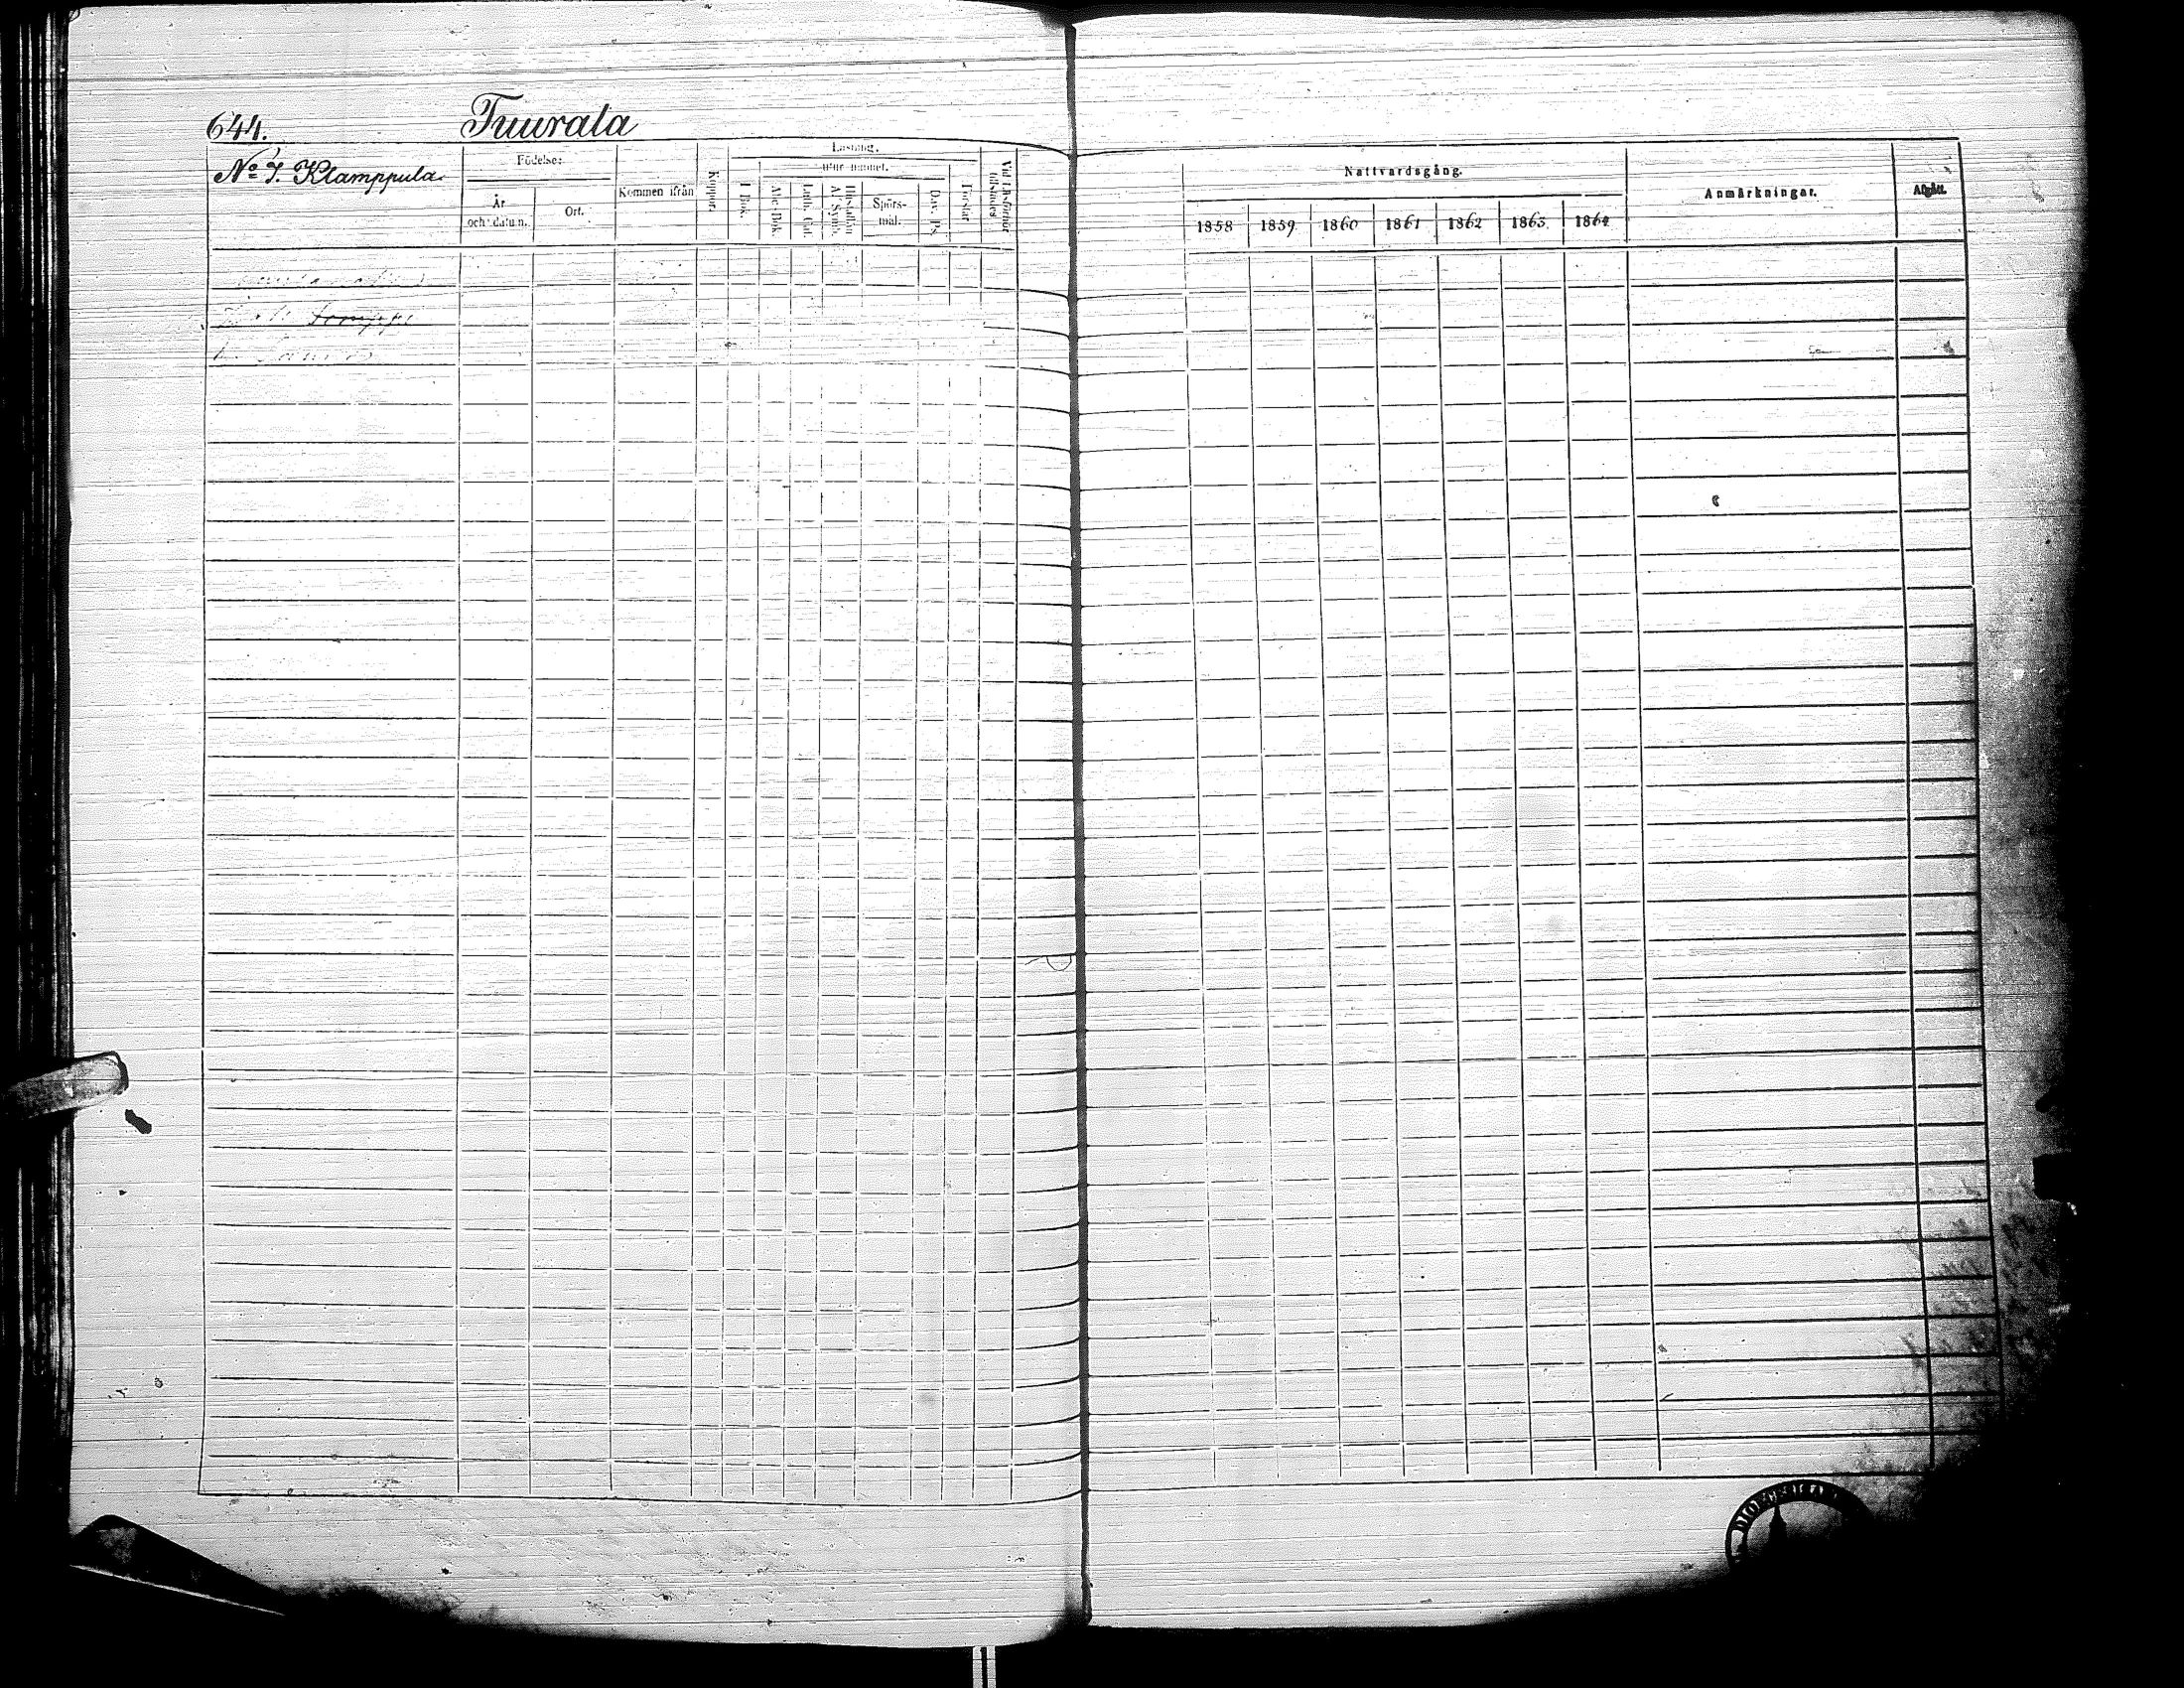 644. Tuurala
No 7. Klamppula
Födelse:
År och datum.
Ort.
Kommen ifrån
Koppor.
Läsning.
I Bok.
utur minnet.
Abc-Bok.
Luth. Cat.
Hustaflan A. Symb.
Spörs-mål.
Dav. Ps.
Förstår
Vid Läsförhör tillstädes
Nattvardsgång.
1858 1859 1860 1861 1862 1863 1864
Anmärkningar.
Afgått.